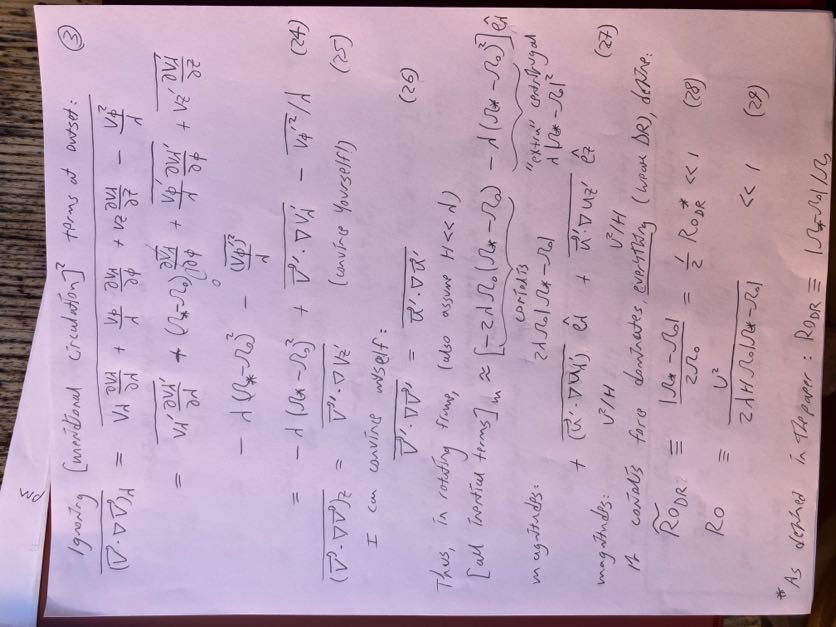 PM
Ignoring [meridional circulation]² terms at outset: ③
\overline{(\vec{V}·∇\vec{V})_λ} = \overline{V_λ ∂V_λ/∂λ + V_φ/λ ∂V_λ/∂φ + V_z ∂V_λ/∂z − V_φ²/λ}
= \overline{V_λ' ∂V_λ'/∂λ} + (Ω_*−Ω_0) ∂\overline{V_λ}/∂φ + \overline{V_φ'/λ ∂V_λ'/∂φ} + \overline{V_z' ∂V_λ'/∂z}
0
− λ(Ω_*−Ω_0)² − \overline{(V_φ')²}/λ
= −λ(Ω_*−Ω_0)² + \overline{\vec{V}'·∇V_λ'} − \overline{V_φ'²}/λ (24)
\overline{(\vec{V}·∇\vec{V})_z} = \overline{\vec{V}'·∇V_z'} (convince yourself!) (25)
I can convince myself:
\overline{\vec{V}'·∇\vec{V}'} = \overline{\vec{u}'·∇\vec{u}'} (26)
Thus, in rotating frame, (also assume H<<λ)
[all inertial terms]_m ≈ [−2λΩ_0(Ω_*−Ω_0) − λ(Ω_*−Ω_0)²]ê_λ
coriolis "extra" centrifugal
magnitudes: 2λΩ_0|Ω_*−Ω_0| λ|Ω_*−Ω_0|²
+ \overline{(\vec{u}'·∇u_λ')} ê_λ + \overline{\vec{u}'·∇u_z'} ê_z (27)
magnitudes: U²/H U²/H
If coriolis force dominates everything (weak DR), define:
\widetilde{Ro}_{DR} ≡ |Ω_*−Ω_0|/2Ω_0 = 1/2 Ro_{DR}^* << 1 (28)
Ro ≡ U²/2λHΩ_0|Ω_*−Ω_0| << 1 (29)
*As defined in the paper: Ro_{DR} ≡ |Ω_*−Ω_0|/Ω_0